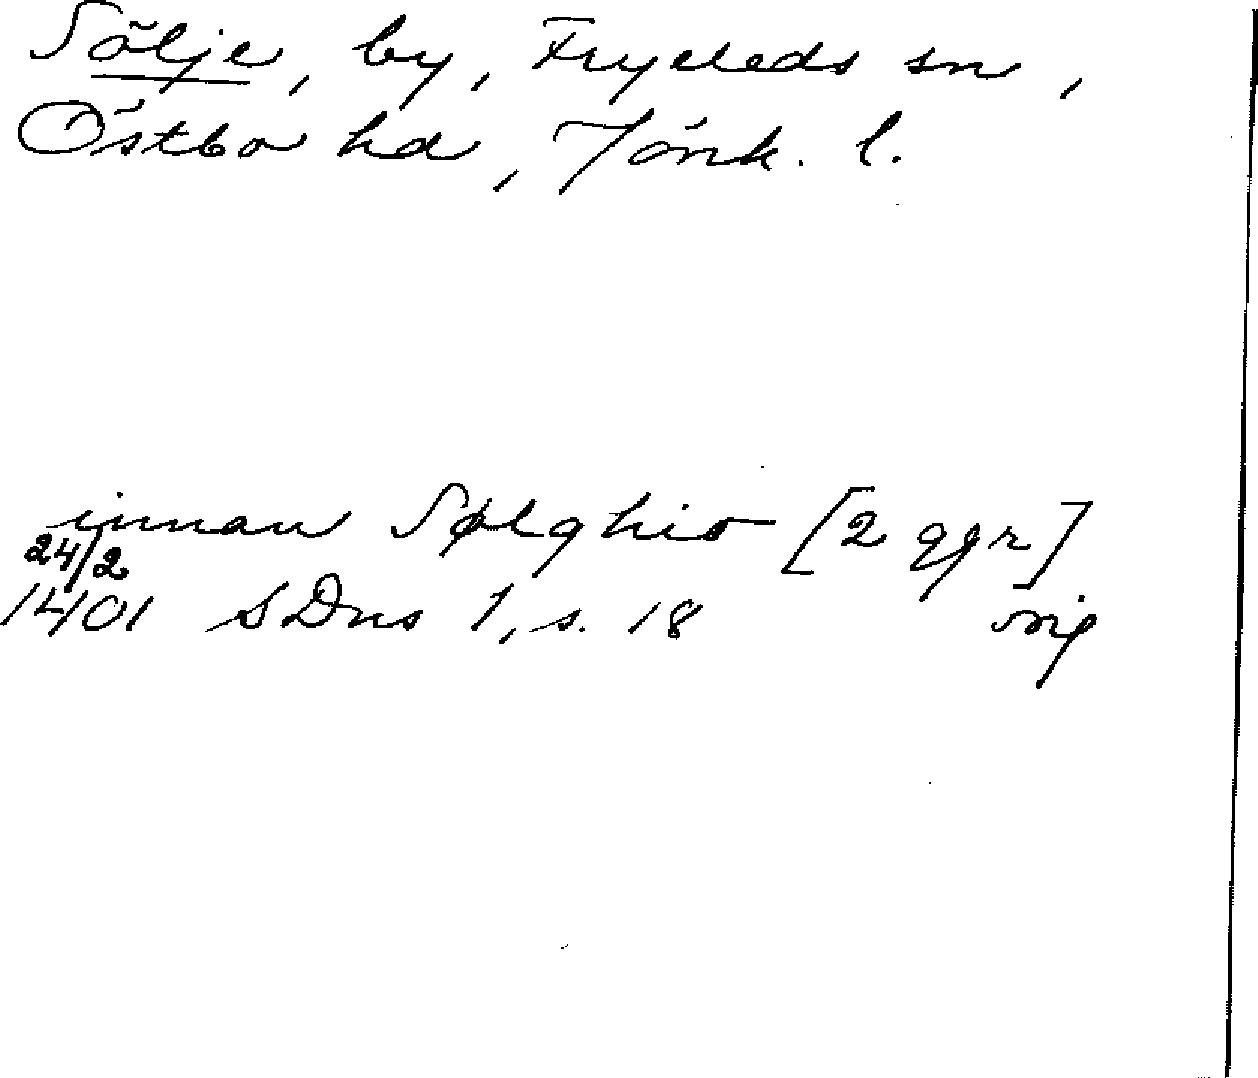 Sölje, by, Fryeleds sn,
Östbo hd, Jönk. l.
innan Sølghio [2 ggr]
24/2
1401 SDns 1, s. 18 orig